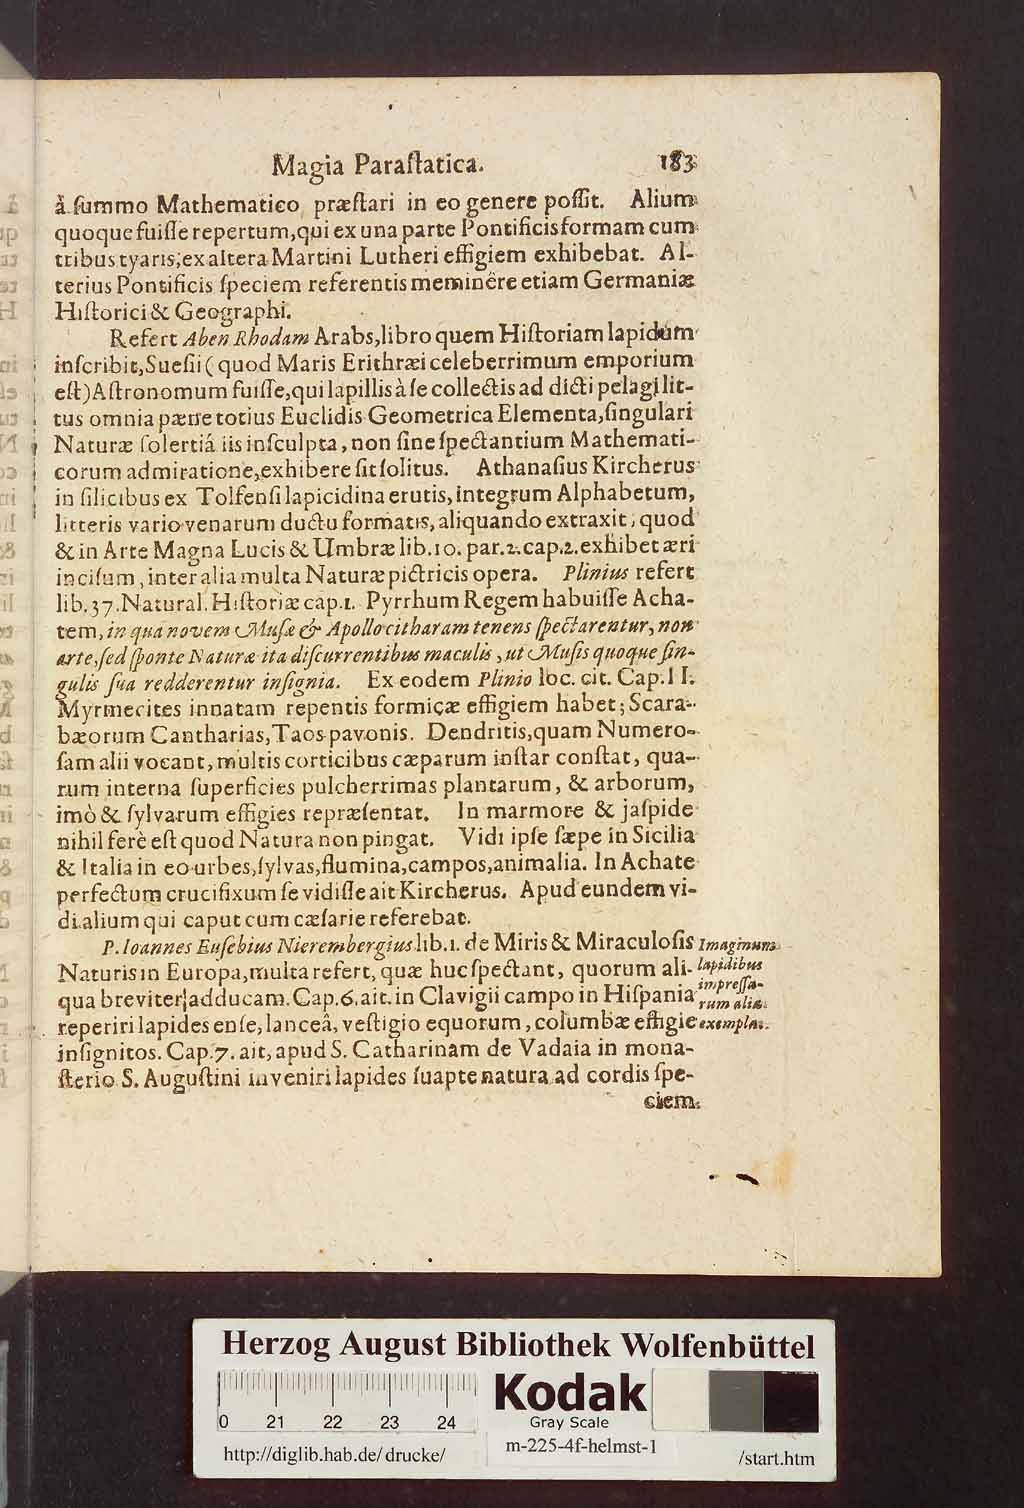 Magia Paraſtatica. 183
à ſummo Mathematico præſtari in eo genere poſſit. Alium
quoque fuiſſe repertum, qui ex una parte Pontificis formam cum
tribus tyaris, ex altera Martini Lutheri effigiem exhibebat. Al-
terius Pontificis ſpeciem referentis meminêre etiam Germaniæ
Hiſtorici & Geographi.
Refert Aben Rhodam Arabs, libro quem Hiſtoriam lapidum
inſcribit, Sueſii (quod Maris Erithræi celeberrimum emporium
eſt) Aſtronomum fuiſſe, qui lapillis à ſe collectis ad dicti pelagi lit-
tus omnia pæne totius Euclidis Geometrica Elementa, ſingulari
Naturæ ſolertiá iis inſculpta, non ſine ſpectantium Mathemati-
corum admiratione, exhibere ſit ſolitus. Athanaſius Kircherus
in ſilicibus ex Tolfenſi lapicidina erutis, integrum Alphabetum,
litteris vario venarum ductu formatis, aliquando extraxit, quod
& in Arte Magna Lucis & Umbræ lib. 10. par. 2. cap. 2. exhibet æri
inciſum, inter alia multa Naturæ pictricis opera. Plinius refert
lib. 37. Natural. Hiſtoriæ cap. 1. Pyrrhum Regem habuiſſe Acha-
tem, in qua novem Muſæ & Apollo citharam tenens ſpectarentur, non
arte, ſed ſponte Naturæ ita diſcurrentibus maculis, ut Muſis quoque ſin-
gulis ſua redderentur inſignia. Ex eodem Plinio loc. cit. Cap. 11.
Myrmecites innatam repentis formicæ effigiem habet; Scara-
bæorum Cantharias, Taos pavonis. Dendritis, quam Numero-
ſam alii vocant, multis corticibus cæparum inſtar conſtat, qua-
rum interna ſuperficies pulcherrimas plantarum, & arborum,
imò & ſylvarum effigies repræſentat. In marmore & jaſpide
nihil ferè eſt quod Natura non pingat. Vidi ipſe ſæpe in Sicilia
& Italia in eo urbes, ſylvas, flumina, campos, animalia. In Achate
perfectum crucifixum ſe vidiſſe ait Kircherus. Apud eundem vi-
di alium qui caput cum cæſarie referebat.
P. Ioannes Euſebius Nierembergius lib. 1. de Miris & Miraculoſis
Naturis in Europa, multa refert, quæ huc ſpectant, quorum ali-
qua breviter adducam. Cap. 6. ait. in Clavigii campo in Hiſpania
reperiri lapides enſe, lanceâ, veſtigio equorum, columbæ effigie
inſignitos. Cap. 7. ait, apud S. Catharinam de Vadaia in mona-
ſterio S. Auguſtini inveniri lapides ſuapte natura ad cordis ſpe-
ciem
Imaginum
lapidibus
impreſſa-
rum alia
exempla.
Herzog August Bibliothek Wolfenbüttel
0 21 22 23 24
Kodak
Gray Scale
http://diglib.hab.de/drucke/ m-225-4f-helmst-1 /start.htm